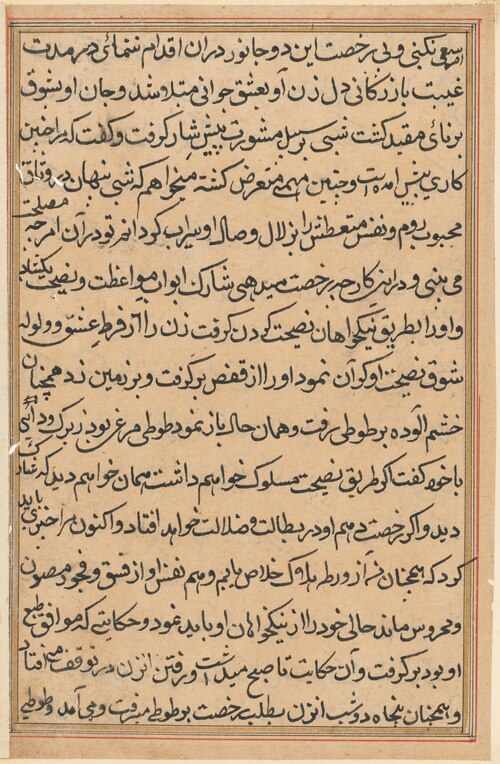 و سعی نکنی و بی رخصت این دو جانور دران اقدام ننمائی در مدت
غیبت بازرگانی دل زن او بعشق جوانی مبتلا شد و جان او بشوق
برنائی مقید کشت شبی بر سبیل مشورت پیش شارک رفت و کفت که مرا چنین
کاری پیش امده است و چنین مهمی متعرض کشته میخواهم که شبی پنهان در وثاق
محبوب روم و نفس متعطش را بزلال وصال او سیراب کردانم تو در آن امر چه مصلحت
می بینی و در این کار چه رخصت میدهی شارک ابواب مواعظت و نصیحت بکشاد
و او را بطریق نیکخواهان نصیحت کردن کرفت زن را از فرط عشق و ولوله
شوق نصیحت او کران نمود او را از قفص برکرفت و بر زمین زد همچنان
خشم آلوده بر طوطی رفت و همان حال باز نمود طوطی مرغی بود زیرک و دانی
با خود کفت اکر طریق نصیحت مسلوک خواهم داشت همان خواهم دید که شارک
دید و اکر رخصت دهم او در بطالت و ضلالت خواهد افتاد و اکنون مرا چیزی باید
کرد که همچنان من از ورطه هلاک خلاص یابم و هم نفس او از فسق و فجور مصون
و محروس ماند حالی خود را از نیکخواهان او باید نمود و حکایتی که موافق طبع
او بود برکرفت و آن حکایت تا صبح میداشت و رفتن انزن در توقف می افتاد
و همچنان پنجاه دو شب انزن بطلب رخصت بر طوطی میرفت و می آمد و طوطی